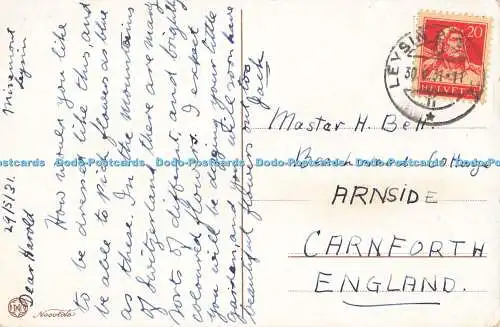 Missemont
Leysin
29/5/31.
Dear Harold
How would you like
to be dressed like this, and
be able to pick flowers as blue
as these. In the Mountains
of Switzerland there are many
sorts of different, and brightly
coloured flowers. I expect
you will be digging your little
garden, and you will soon have
beautiful flowers out too
Jack
LEYSIN
20
HELVETIA
Master H. Bell.
Cottage
ARNSIDE
CARNFORTH
ENGLAND.
Dodo-Postcards Dodo-Postcards Dodo-Postcards Dodo-Postcards